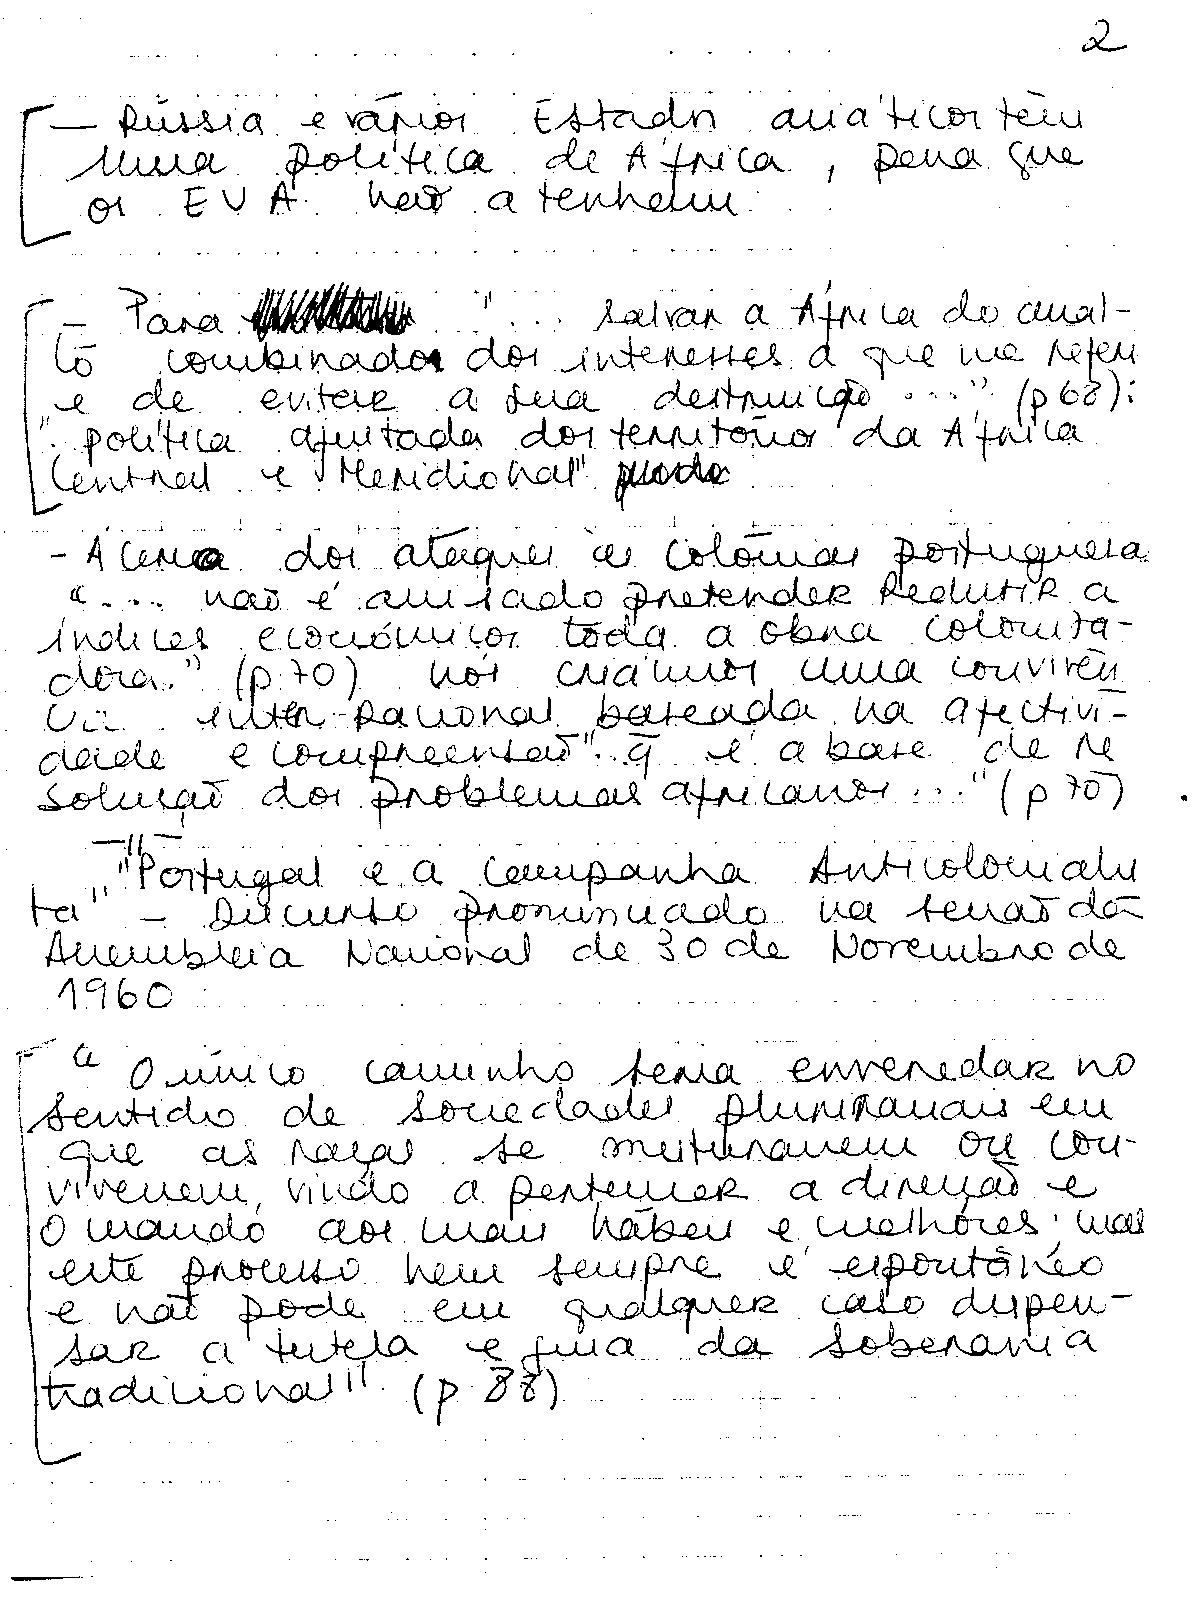 2
— Rússia e vários Estados asiáticos têm
uma política de África, pena que
os EUA não a tenham
— Para "... salvar a África do assal-
to combinado dos interesses a que me referi
e de evitar a sua destruição ..." (p 68):
"política ajustada dos territórios da África
Central e Meridional"
- Acerca dos ataques às colónias portuguesa
"... não é avisado pretender reduzir a
índices económicos toda a obra coloniza-
dora." (p. 70) nós criámos uma convivên
cia inter-racional baseada na afectivi-
dade e compreensão" q̄ é a base de re
solução dos problemas africanos ..." (p 70)
—"—
"Portugal e a Campanha Anticolonialis
ta" - Discurso pronunciado na sessão da
Assembleia Nacional de 30 de Novembro de
1960
"O único caminho seria enveredar no
sentido de sociedades plurirraciais em
que as raças se misturassem ou con-
vivessem, vindo a pertencer a direcção e
o mando aos mais hábeis e melhores; mas
este processo nem sempre é espontâneo
e não pode em qualquer caso dispen-
sar a tutela e guia da soberania
tradicional" (p 88)